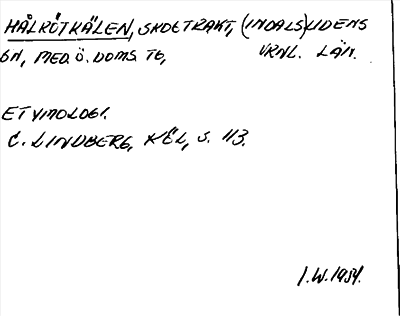 HÅLRÖTKÄLEN, SKOGTRAKT, (INDALS)LIDENS
SN, MED. Ö. DOMS. TG, VRNL. LÄN.
ETYMOLOGI.
C. LINDBERG, KÖL, S. 113.
I.W. 1934.